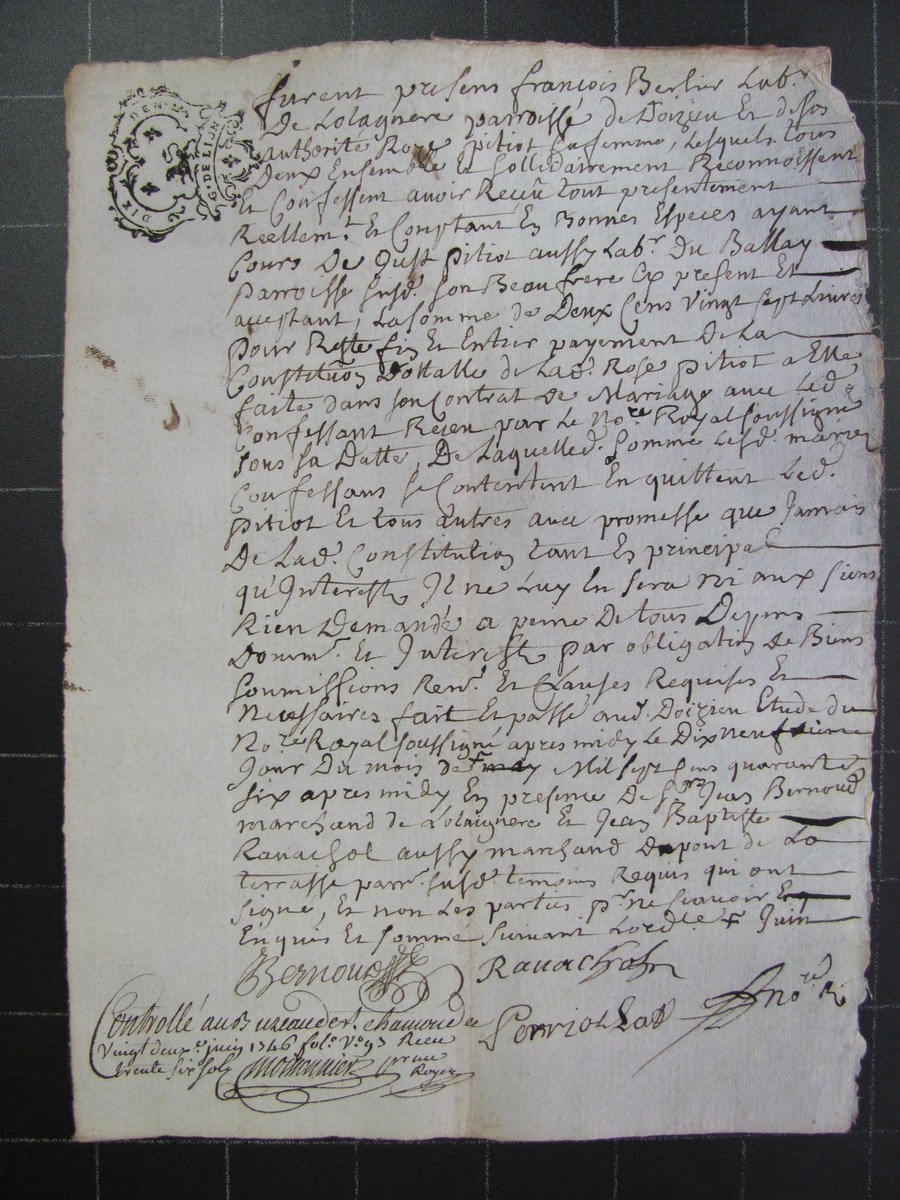 DIX DEN.
G. DE LION
furent presens françois Berlier Lab.r
De Lolagnere parroisse de Doizieu Et de Sos
authorité Roze pitiot Sa femme, Lesquels tous
Deux Ensemble Et Sollidairement Reconnoissent
Et Confessent avoir Receu tout presentement
Reellem.t Et Comptant En Bonnes Especes ayant
Cours De Just pitiot aussy Lab.r Du Ballay
parroisse Susd. Son Beau frere Cy present Et
acceptant, La Somme de Deux Cens Vingt Sept Livres
pour Reste fin Et Entier payement De La
Constitution Dottalle de Lad. Rose pitiot a Elle
faite dans Son Contrat De Mariage avec Led.
Confessant Receu par Le No.re Royal Soussigné
Sous Sa Datte, De Laquelle d. Somme Lesd. mariez
Confessans Se Contentent En quittent Led.
pitiot Et tous autres avec promesse que Jamais
De Lad. Constitution tant En principal
qu'Interest Il ne Luy En Sera ni aux Siens
Rien Demandé a peine De tous Depens
Domm. Et Interest par obligation De Biens
Soumissions Ren. Et Clauses Requises Et
Necessaires fait Et passé aud. Doizieu Etude du
No.re Royal Soussigné apres midy Le Dix neufvieme
Jour Du mois de may Mil Sept Cens quarante
Six apres midy En presence De S.r Jean Bernoud
marchand de Lolaignere Et Jean Baptiste
Ravachol aussy marchand Du pont de La
terrasse parr. Susd. temoins Requis qui ont
Signé, Et non Les parties p.r ne Scavoir
Enquis Et Sommé Suivant Lord.ce + Juin
Bernoud
Ravachol
no.re R.
Controllé au Bureau de St. chamond Le
Vingt deux.e juin 1746 fol. V.o 93 Receu
trente Six Sols